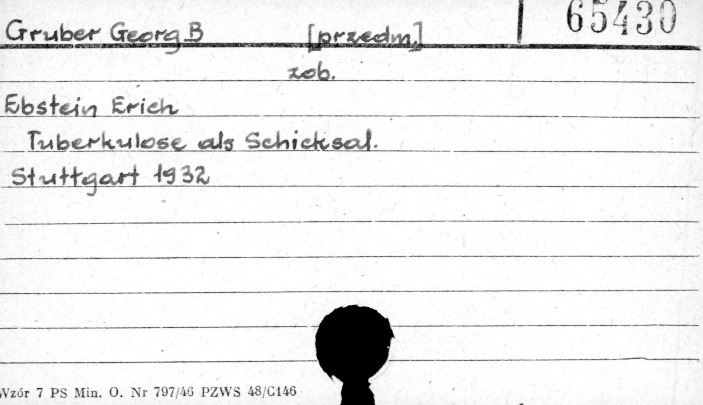 Gruber Georg B [przedm.] 65430
zob.
Ebstein Erich
Tuberkulose als Schicksal.
Stuttgart 1932
Wzór 7 PS Min. O. Nr 797/46 PZWS 48/G146